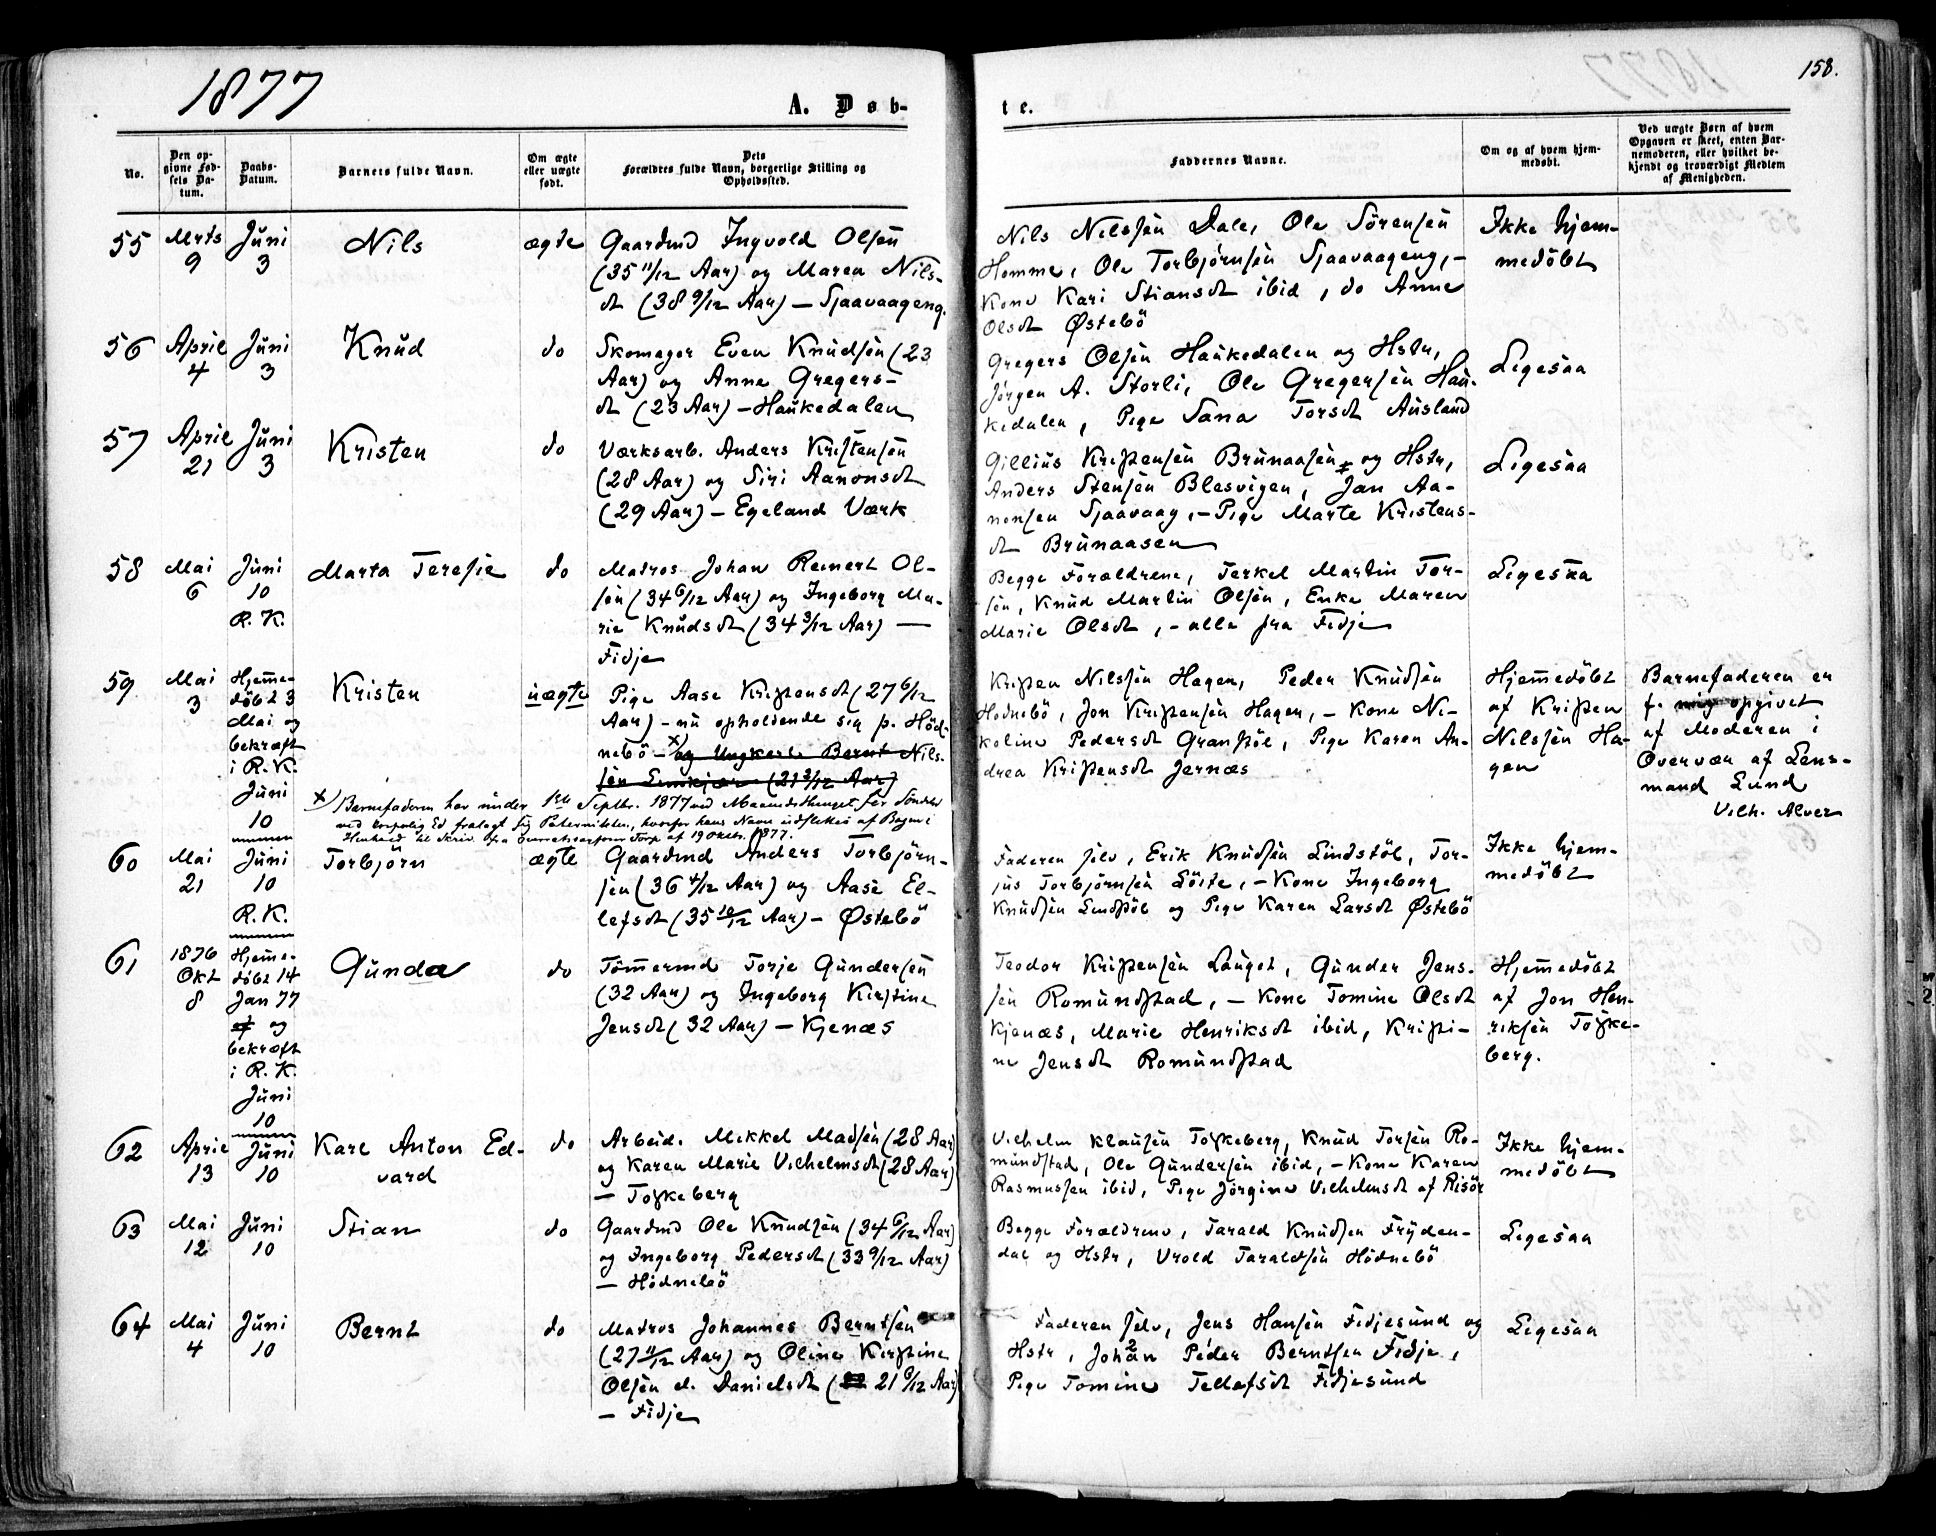 1877
A. Døb-
te.
158.
No.
Den op-
givne Fød-
sels Da-
tum.
Daabs-
Datum.
Barnets fulde Navn.
Om ægte
eller uægte
født.
Dets
Forældres fulde Navn, borgerlige Stilling og
Opholdssted.
Faddernes Navne.
Om og af hvem hjem-
medøbt.
Ved uægte Børn af hvem
Opgaven er skeet, enten Bar-
nemoderen, eller hvilket be-
kjendt og troværdigt Medlem
af Menigheden.
55
Mrts
9
Juni
3
Nils
ægte
Gaardmd Ingvold Olsen
(35 11/12 Aar) og Maren Nils-
dt (38 9/12 Aar) – Sjaavaageng.
Nils Nilssen Dale, Ole Sörensen
Homme, Ole Torbjörnsen Sjaavaageng, –
Kone Kari Stiansdt ibid, do Anne
Olsdt Østebö
Ikke hjem-
medöbt
56
April
4
Juni
3
Knud
do
Skomager Even Knudsen (23
Aar) og Anne Gregers-
dt (23 Aar) – Haukedalen
Gregers Olsen Haukedalen og Hstr,
Jörgen A. Storli, Ole Gregersen Hau-
kedalen, Pige Sana Torsdt Ausland
Ligesaa
57
April
21
Juni
3
Kristen
do
Værksarb. Anders Kristensen
(28 Aar) og Siri Aanonsdt
(29 Aar) – Egeland Værk
Gillius Kristensen Brunaasen og Hstr,
Anders Stensen Blesvigen, Jan Aa-
nonsen Sjaavaag, – Pige Marte Kristens-
dt Brunaasen
Ligesaa
58
Mai
6
Juni
10
R. K.
Marta Teresie
do
Matros Johan Reinert Ol-
sen (34 6/12 Aar) og Ingeborg Ma-
rie Knudsdt (34 3/12 Aar) –
Fidje
Begge Forældrene, Terkel Martin Tor-
sen, Knud Martin Olsen, Enke Maren
Marie Olsdt, – alle fra Fidje
Ligesaa
59
Mai
3
Hjemme-
döbt 3
Mai og
bekræft
i R. K.
Juni
10
Kristen
uægte
Pige Aase Kristensdt (27 6/12
Aar) – nu opholdende sig p. Höd-
nebö – x) og Ungkarl Bernt Nils-
sen (21 3/12 Aar)
x) Barnefaderen har under 1ste Septbr. 1877 ved Maanedsthinget for Söndeled
ved korporlig Ed fralagt sig Paterniteten, hvorfor hans Navn udslettes af Bogen i
Henhold til Skriv. fra Torp af 19 Oktbr. 1877.
Kristen Nilssen Hagen, Peder Knudsen
Hodnebö, Jon Kristensen Hagen, – Kone Ni-
koline Pedersdt Granstöl, Pige Karen An-
drea Kristensdt Jernæs
Hjemmedöbt
af Kristen
Nilssen Ha-
gen
Barnefaderen er
f. mig opgivet
af Moderen i
Overvær af Lens-
mand Lund
Vilh. Alver
60
Mai
21
Juni
10
R. K.
Torbjörn
ægte
Gaardmd Anders Torbjörn-
sen (36 4/12 Aar) og Aase El-
lefsdt (35 10/12 Aar) – Østebö
Faderen selv, Erik Knudsen Lindstöl, Tor-
jus Torbjörnsen Löite, – Kone Ingeborg
Knudsen Lindstöl og Pige Karen Larsdt Østebö
Ikke hjem-
medöbt
61
1876
Okt
8
Hjemme-
döbt 14
Jan 77
og
bekræft
i R. K.
Juni
10
Gunda
do
Tömmermd Torje Gundersen
(32 Aar) og Ingeborg Kirstine
Jensdt (32 Aar) – Kjenæs
Teodor Kristensen Lauget, Gunder Jens-
sen Romundstad, – Kone Tomine Olsdt
Kjenæs, Marie Henriksdt ibid, Kristi-
ne Jensdt Romundstad
Hjemmedöbt
af Jon Hen-
riksen Toskе-
berg.
62
April
13
Juni
10
Karl Anton Ed-
vard
do
Arbeid. Mikkel Madsen (28 Aar)
og Karen Marie Vilhelmsdt (28 Aar)
– Toskeberg
Vilhelm Klausen Toskeberg, Knud Torsen Ro-
mundstad, Ole Gundersen ibid, – Kone Karen
Rasmussen ibid, Pige Jörgine Vilhelmsdt af Risör
Ikke hjem-
medöbt
63
Mai
12
Juni
10
Stian
do
Gaardmd Ole Knudsen (34 6/12 Aar)
og Ingeborg Pedersdt (33 9/12 Aar)
– Hödnebö
Begge Forældrene, Tarald Knudsen Fryden-
dal og Hstr, Vrold Taraldsen Hödnebö
Ligesaa
64
Mai
4
Juni
10
Bernt
do
Matros Johannes Berntsen
(27 11/12 Aar) og Oline Kirstine
Olsen el. Danielsdt (21 6/12 Aar)
– Fidje
Faderen selv, Jens Hansen Fidjesund og
Hstr, Johan Peder Berntsen Fidje,
Pige Tomine Tellefsdt Fidjesund
Ligesaa